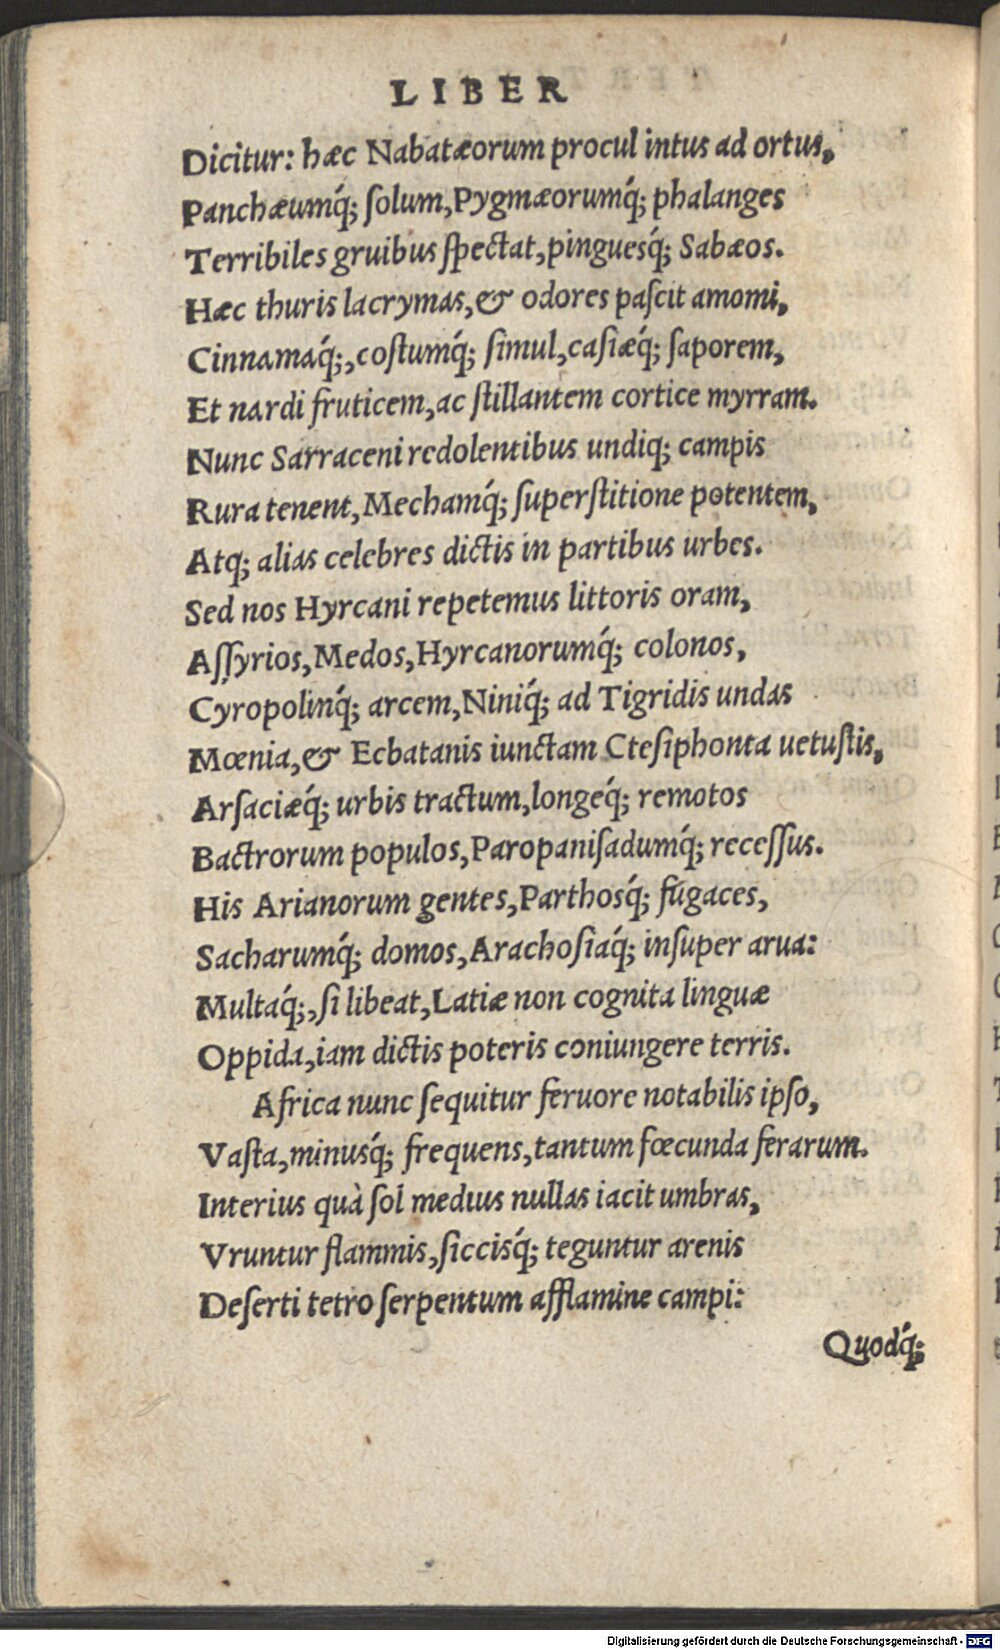 LIBER
Dicitur: hæc Nabatæorum procul intus ad ortus,
Panchæumq́; ſolum, Pygmæorumq́; phalanges
Terribiles gruibus ſpectat, pinguesq́; Sabæos.
Hæc thuris lacrymas, & odores paſcit amomi,
Cinnamaq́;, coſtumq́; ſimul, caſiæq́; ſaporem,
Et nardi fruticem, ac ſtillantem cortice myrram.
Nunc Sarraceni redolentibus undiq; campis
Rura tenent, Mechamq́; ſuperſtitione potentem,
Atq; alias celebres dictis in partibus urbes.
Sed nos Hyrcani repetemus littoris oram,
Aſſyrios, Medos, Hyrcanorumq́; colonos,
Cyropolinq́; arcem, Niniq́; ad Tigridis undas
Mœnia, & Ecbatanis iunctam Cteſiphonta uetuſtis,
Arſaciæq́; urbis tractum, longeq́; remotos
Bactrorum populos, Paropaniſadumq́; receſſus.
His Arianorum gentes, Parthosq́; fugaces,
Sacharumq́; domos, Arachoſiaq́; inſuper arua:
Multaq́;, ſi libeat, Latiæ non cognita linguæ
Oppida, iam dictis poteris coniungere terris.
Africa nunc ſequitur feruore notabilis ipſo,
Vaſta, minusq́; frequens, tantum fœcunda ferarum.
Interius quà ſol medius nullas iacit umbras,
Vruntur flammis, ſiccisq́; teguntur arenis
Deſerti tetro ſerpentum afflamine campi:
Quodq́;
Digitalisierung gefördert durch die Deutsche Forschungsgemeinschaft - DFG